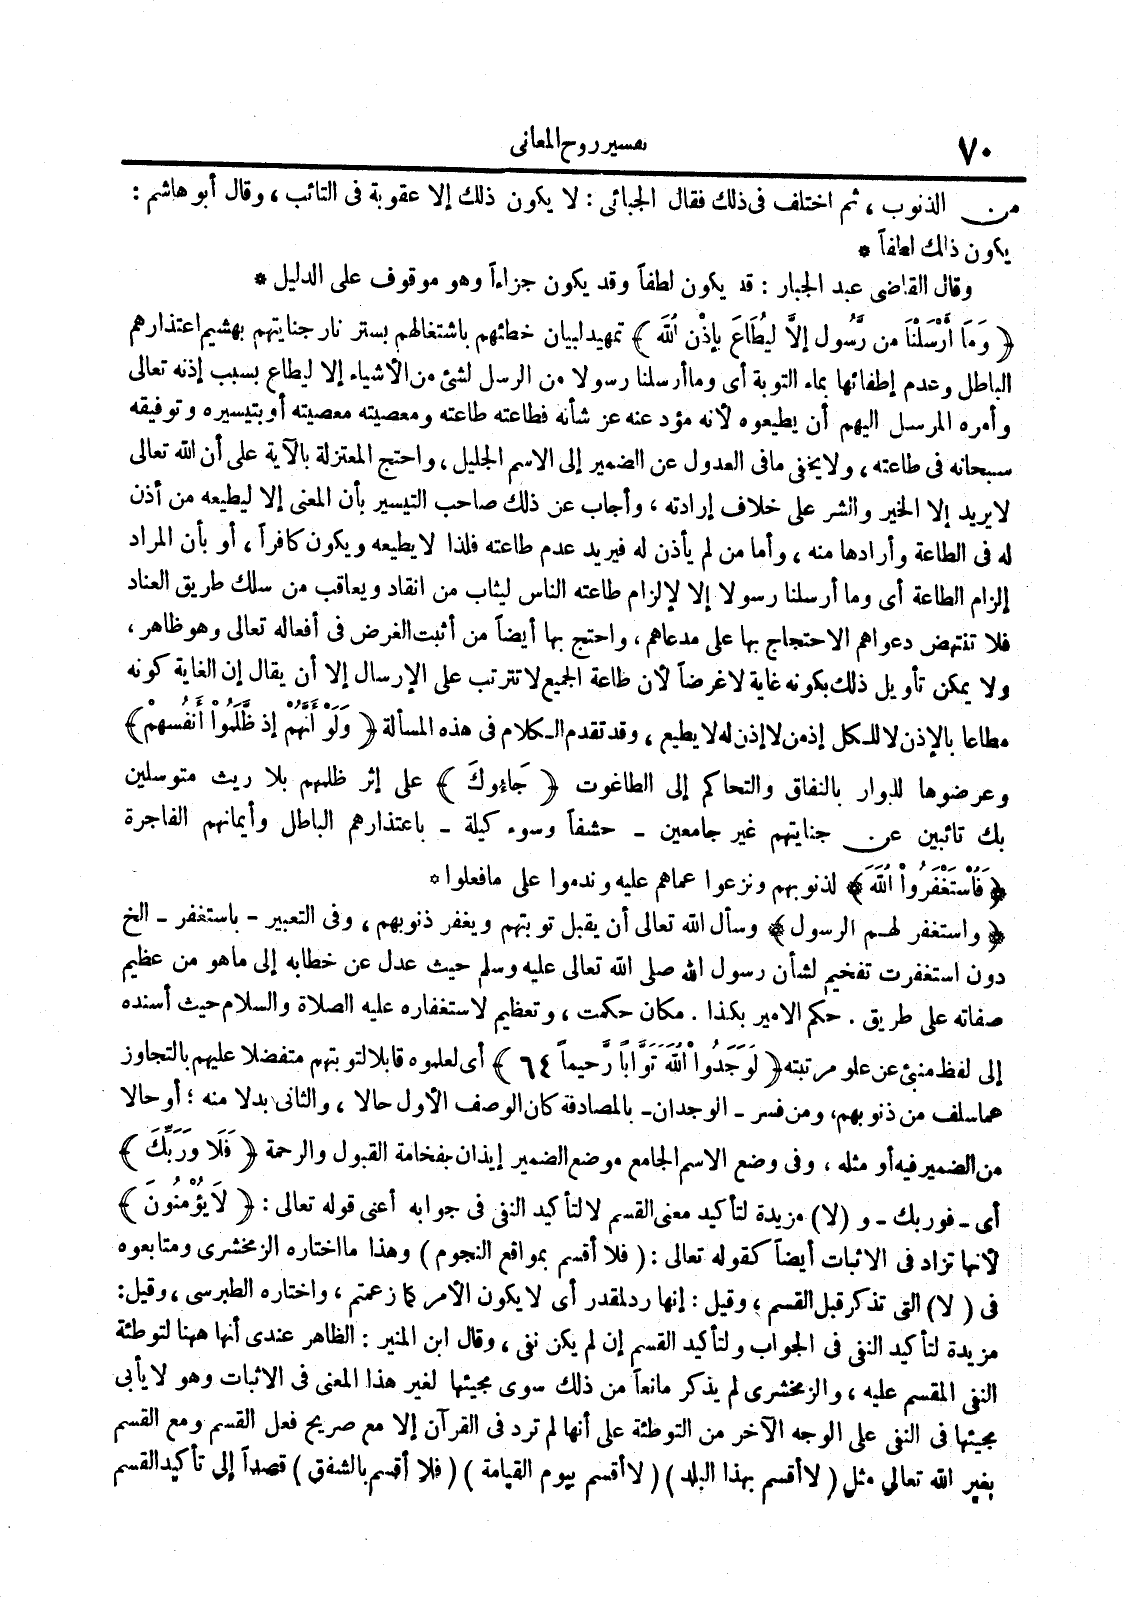 ٧٠
تفسير روح المعانى
من الذنوب ، ثم اختلف فى ذلك فقال الجبائى : لا يكون ذلك إلا عقوبة فى التائب ، وقال أبو هاشم :
يكون ذلك لطفاً *
وقال القاضى عبد الجبار : قد يكون لطفاً وقد يكون جزاءاً وهو موقوف على الدليل *
﴿ وَمَا أَرْسَلْنَا من رَّسُول إلَّا ليُطَاعَ بإذْن اللَّه ﴾ تمهيد لبيان خطئهم باشتغالهم بستر نار جنايتهم بهشيم اعتذارهم
الباطل وعدم إطفائها بماء التوبة أى وما أرسلنا رسولا من الرسل لشئ من الأشياء إلا ليطاع بسبب إذنه تعالى
وأمره المرسل اليهم أن يطيعوه لأنه مؤد عنه عز شأنه فطاعته طاعته ومعصيته معصيته أو بتيسيره وتوفيقه
سبحانه فى طاعته ، ولا يخفى مافى العدول عن الضمير إلى الاسم الجليل ، واحتج المعتزلة بالآية على أن الله تعالى
لا يريد إلا الخير والشر على خلاف إرادته ، وأجاب عن ذلك صاحب التيسير بأن المعنى إلا ليطيعه من أذن
له فى الطاعة وأرادها منه ، وأما من لم يأذن له فيريد عدم طاعته فلذا لا يطيعه ويكون كافراً ، أو بأن المراد
إلزام الطاعة أى وما أرسلنا رسولا إلا لإلزام طاعته الناس ليثاب من انقاد ويعاقب من سلك طريق العناد
فلا تنتهض دعواهم الاحتجاج بها على مدعاهم ، واحتج بها أيضاً من أثبت الغرض فى أفعاله تعالى وهو ظاهر ،
ولا يمكن تأويل ذلك بكونه غاية لا غرضاً لأن طاعة الجميع لا تترتب على الإرسال إلا أن يقال إن الغاية كونه
مطاعا بالإذن لا للكل إذ من لا إذن له لا يطيع ، وقد تقدم الكلام فى هذه المسألة ﴿ وَلَوْ أَنَّهُمْ إذ ظَّلَمُواْ أَنفُسهمْ ﴾
وعرضوها للبوار بالنفاق والتحاكم إلى الطاغوت ﴿ جَاءُوكَ ﴾ على إثر ظلمهم بلا ريث متوسلين
بك تائبين عن جنايتهم غير جامعين ـ حشفاً وسوء كيلة ـ باعتذارهم الباطل وأيمانهم الفاجرة
﴿ فَاسْتَغْفَرُواْ اللَّهَ ﴾ لذنوبهم ونزعوا عماهم عليه وندموا على مافعلوا *
﴿ واستغفر لهم الرسول ﴾ وسأل الله تعالى أن يقبل توبتهم ويغفر ذنوبهم ، وفى التعبير ـ باستغفر ـ الخ
دون استغفرت تفخيم لشأن رسول الله صلى الله تعالى عليه وسلم حيث عدل عن خطابه إلى ماهو من عظيم
صفاته على طريق . حكم الامير بكذا . مكان حكمت ، وتعظيم لاستغفاره عليه الصلاة والسلام حيث أسنده
إلى لفظ منبئ عن علو مرتبته ﴿ لَوَجَدُواْ اللَّهَ تَوَّاباً رَّحيماً ٦٤ ﴾ أى لعلموه قابلا لتوبتهم متفضلا عليهم بالتجاوز
عماسلف من ذنوبهم، ومن فسر ـ الوجدان ـ بالمصادفة كان الوصف الأول حالا ، والثانى بدلا منه ؛ أو حالا
من الضمير فيه أو مثله ، وفى وضع الاسم الجامع موضع الضمير إيذان بفخامة القبول والرحمة ﴿ فَلَا وَرَبِّكَ ﴾
أى ـ فوربك ـ و (لا) مزيدة لتأكيد معنى القسم لا لتأكيد النفى فى جوابه أعنى قوله تعالى : ﴿ لَا يُؤْمنُونَ ﴾
لأنها تزاد فى الاثبات أيضاً كقوله تعالى : ( فلا أقسم بمواقع النجوم ) وهذا ما اختاره الزمخشرى ومتابعوه
فى ( لا) التى تذكر قبل القسم ، وقيل : إنها رد لمقدر أى لا يكون الأمر كما زعمتم ، واختاره الطبرسى ، وقيل:
مزيدة لتأكيد النفى فى الجواب ولتأكيد القسم إن لم يكن نفى ، وقال ابن المنير : الظاهر عندى أنها ههنا لتوطئة
النفى المقسم عليه ، والزمخشرى لم يذكر مانعاً من ذلك سوى مجيئها لغير هذا المعنى فى الاثبات وهو لا يأبى
مجيئها فى النفى على الوجه الآخر من التوطئة على أنها لم ترد فى القرآن إلا مع صريح فعل القسم ومع القسم
بغير الله تعالى مثل ( لا أقسم بهذا البلد ) ( لا أقسم بيوم القيامة ) ( فلا أقسم بالشفق ) قصداً إلى تأكيد القسم